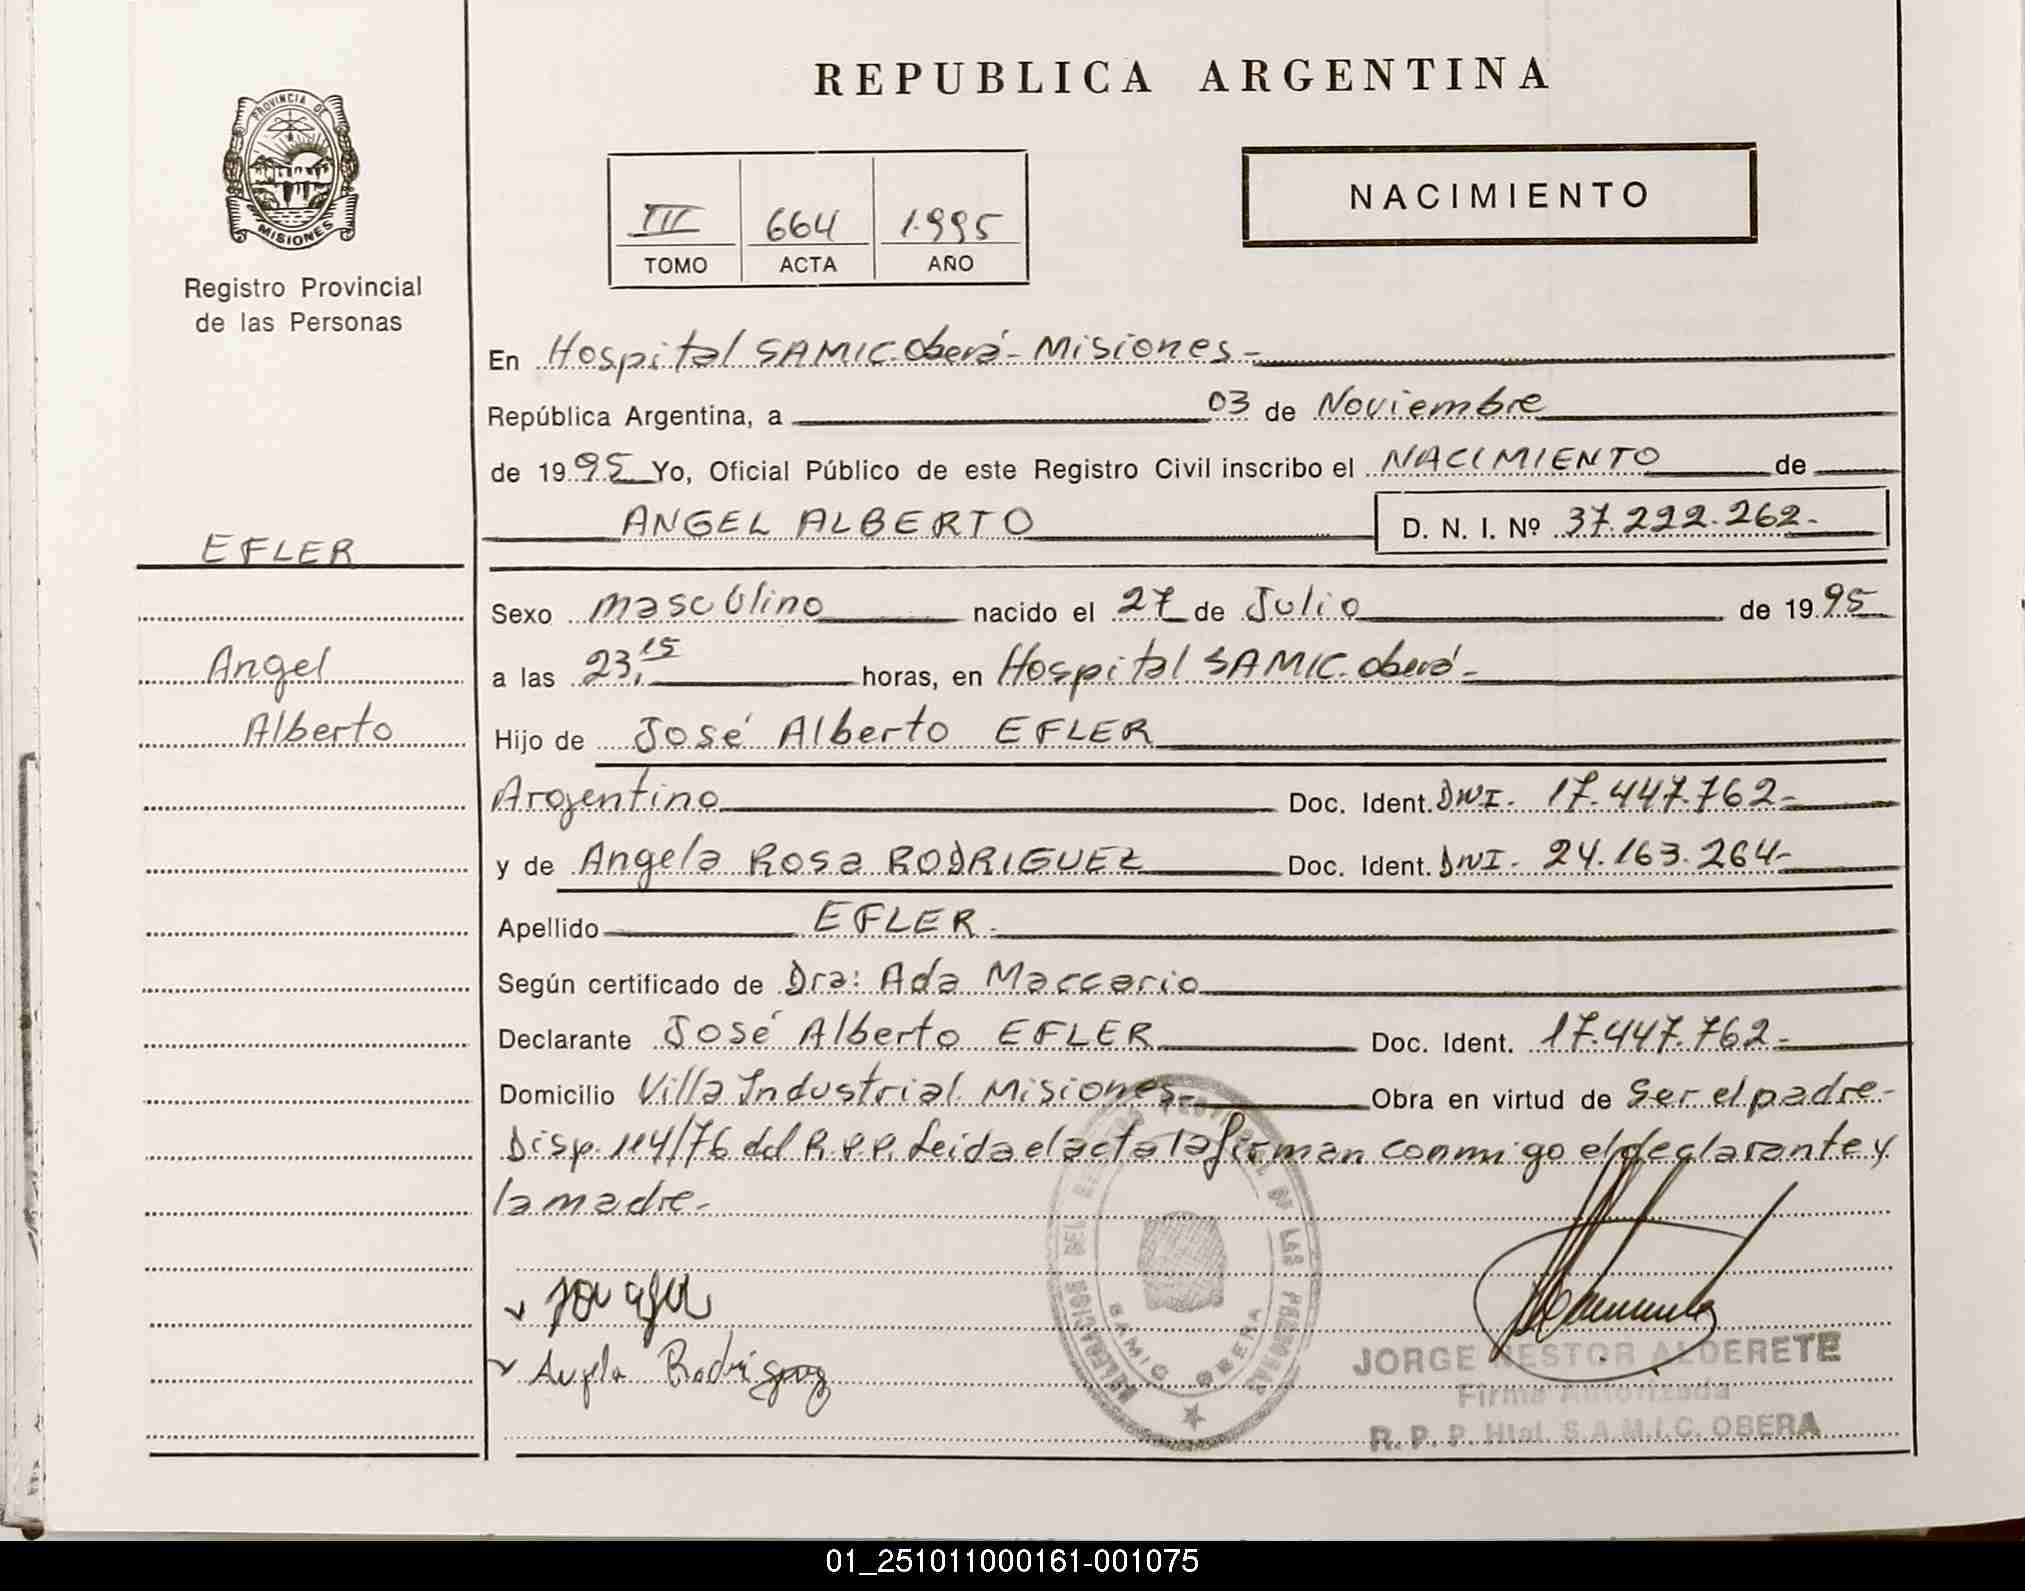 REPUBLICA ARGENTINA
PROVINCIA DE
MISIONES
NACIMIENTO
III 664 1.995
TOMO ACTA AÑO
Registro Provincial
de las Personas
En Hospital SAMIC-Oberá- Misiones-
República Argentina, a 03 de Noviembre
de 1995 Yo, Oficial Público de este Registro Civil inscribo el NACIMIENTO de
ANGEL ALBERTO D. N. I. Nº 37.222.262.-
EFLER
Sexo masculino nacido el 27 de Julio de 1995
Angel
a las 23,15 horas, en Hospital SAMIC. Oberá-
Alberto
Hijo de José Alberto EFLER
Argentino Doc. Ident. DNI. 17.447.762-
y de Angela Rosa RODRIGUEZ Doc. Ident. DNI. 24.163.264-
Apellido EFLER.
Según certificado de Dra: Ada Maccario
Declarante José Alberto EFLER Doc. Ident. 17.447.762-
Domicilio Villa Industrial Misiones- Obra en virtud de Ser el padre-
Disp. 114/76 del R.P.P. Leida el acta la firman conmigo el declarante y
la madre.-
DEL DE LAS
SAMIC OBERA
Angela Rodriguez
JORGE NESTOR ALDERETE
Firma Autorizada
R. P. P. Htal. S.A.M.I.C. OBERA
01_251011000161-001075